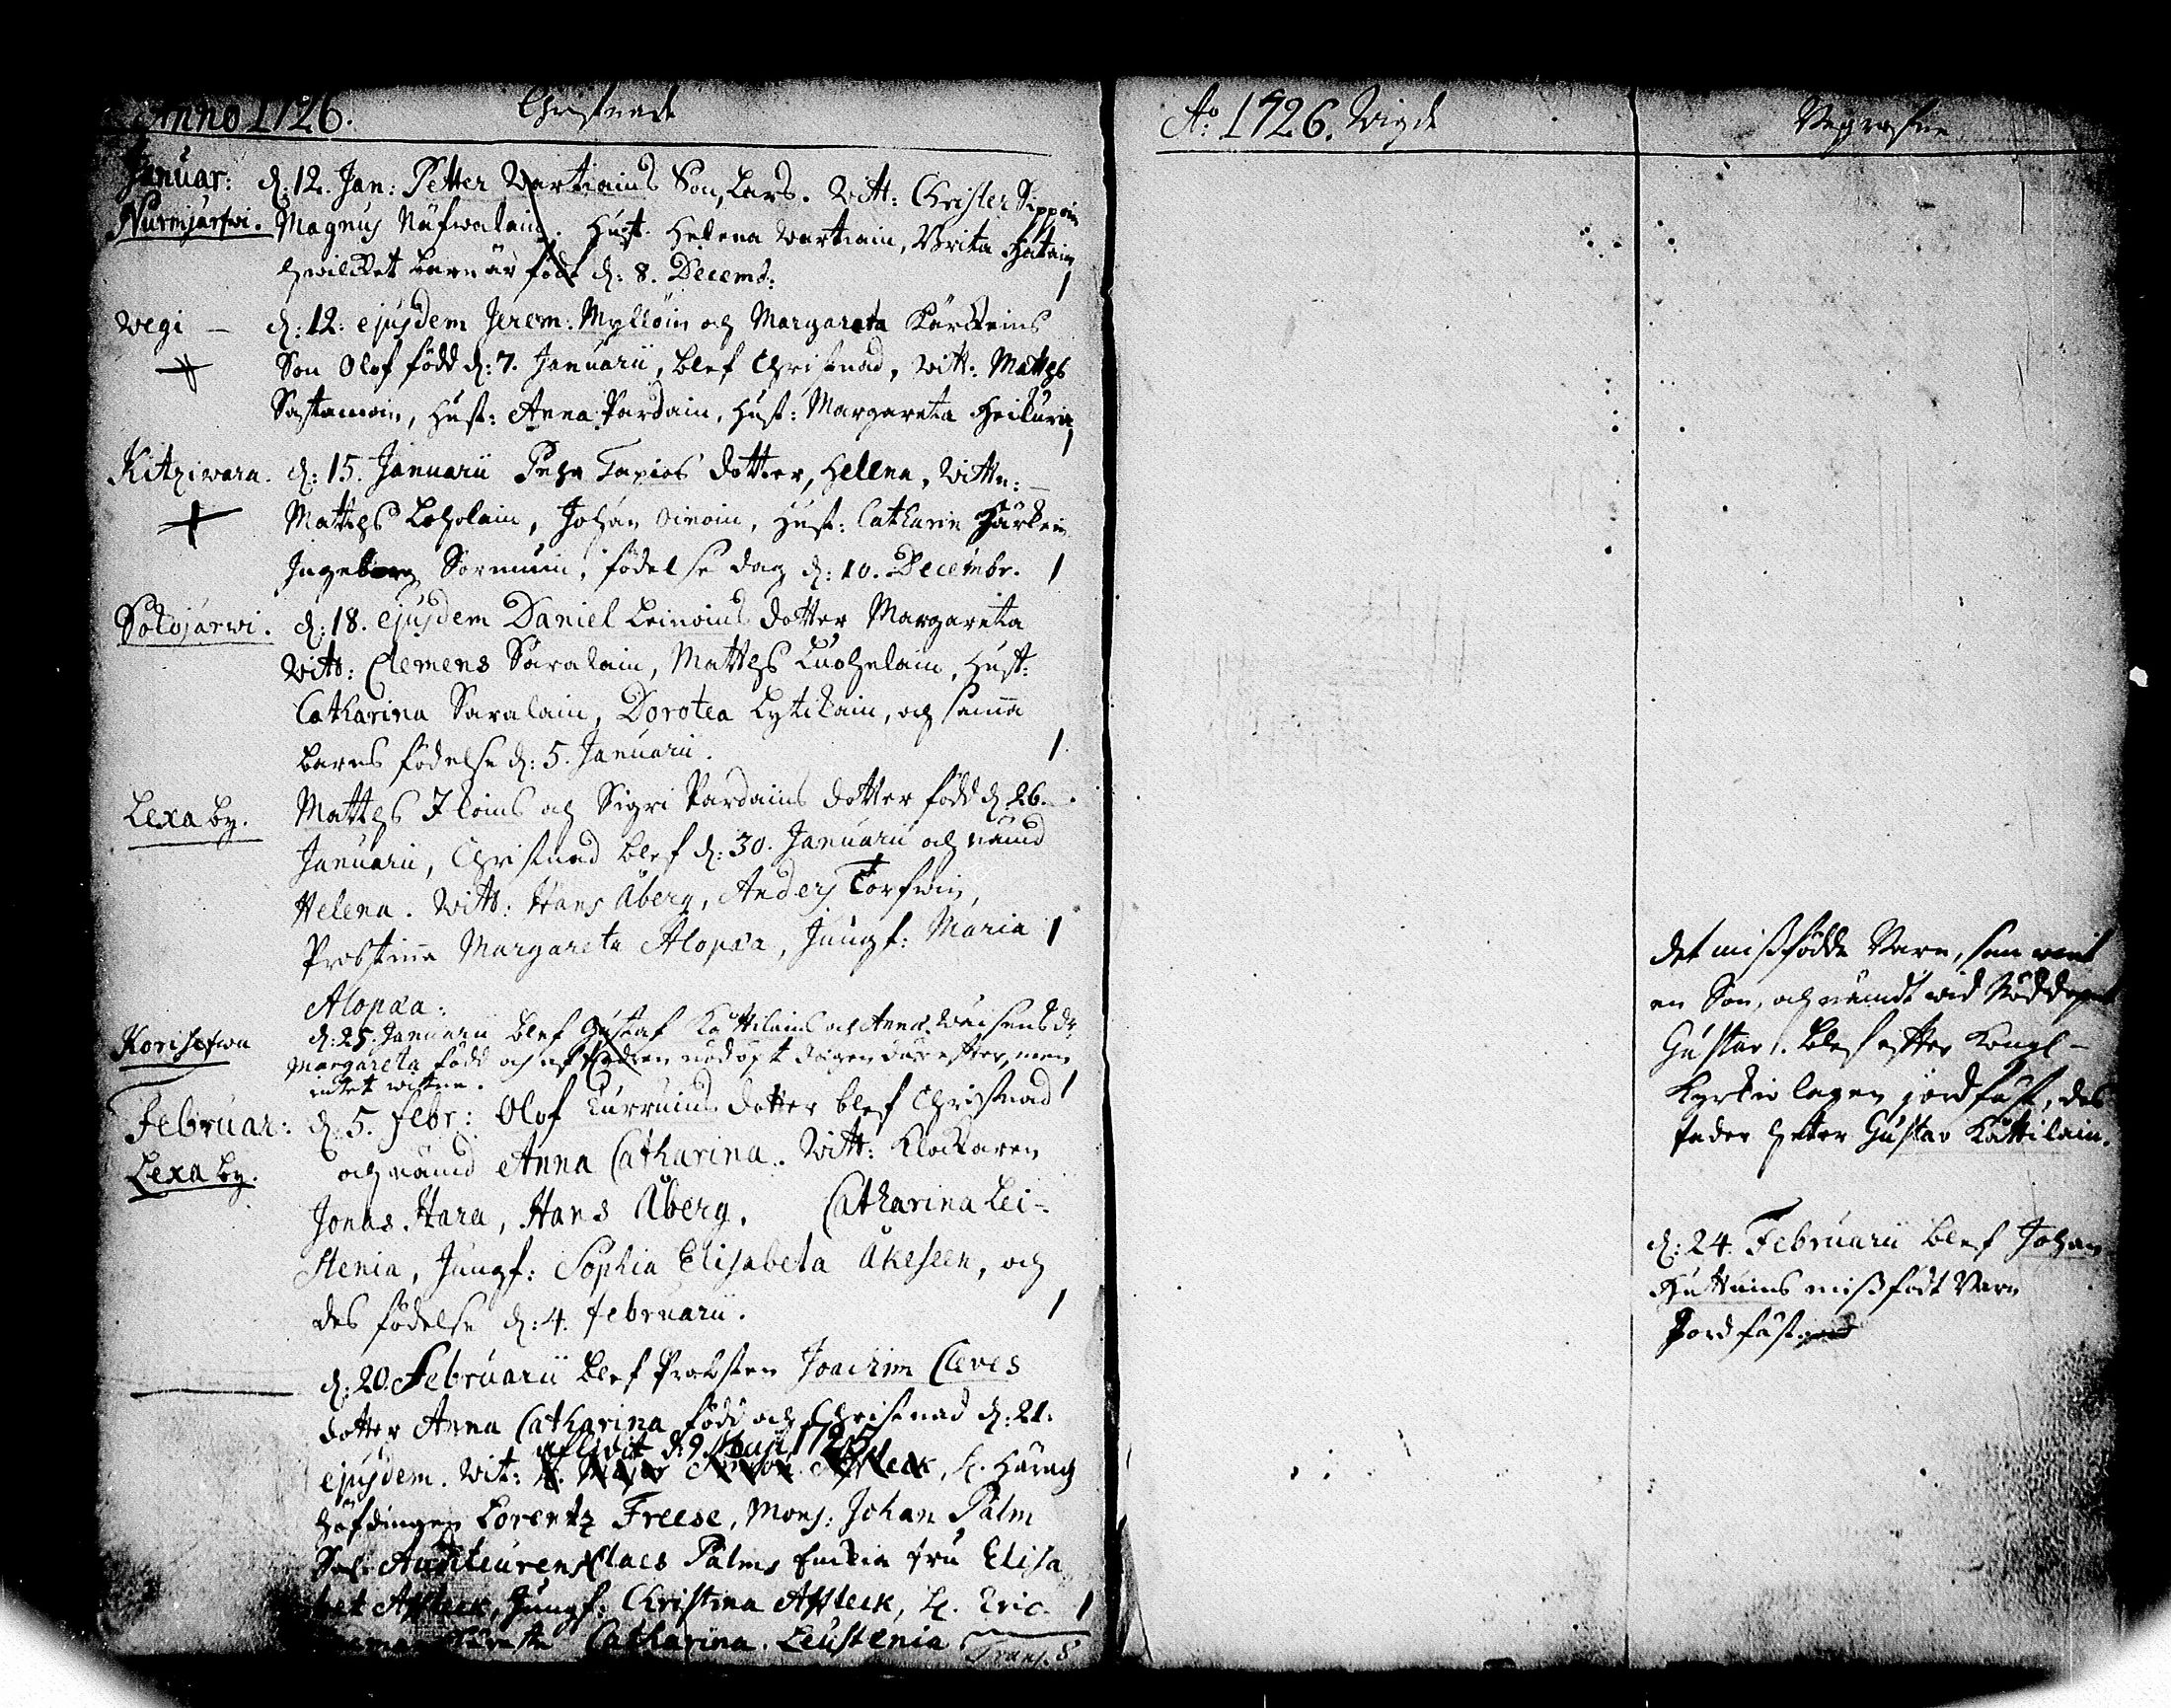 Anno 1726. Christnade
Januar: d: 12. Jan: Petter Wartiains Son, Lars. Witt: Christer Sippoin
Nurmijärfwi. Magnus Näfwalain. Hust. Helena Wartiain, Brita Hatain
hwilket barn är född d: 8. Decemb:
Wegi — d: 12: ejusdem Jerem: Mylloin och Margareta Kärkeins
Son Olof född d: 7. Januarii, blef Christnad, Witt: Matths
Sastamoin, Hust: Anna Pardain, Hust: Margareta Heikurin
Kitziwara. d: 15. Januarii Pehr Tapios dotter, Helena, Wittn:
Matths Loholain, Johan Oinoin, Hust: Catharin Härkein
Ingeborg Sormuin, födelse dag d: 10. Decembr.
Sokojärwi. d: 18. ejusdem Daniel Leinoins dotter Margareta
Witt: Clemens Saralain, Matths Luohelain, Hust:
Catharina Saralain, Dorotea Lytikain, och samma
barns födelse d: 5. Januarii.
Lexa by. Matths Ikoins och Sigri Pardains dotter född d 26.
Januarii, Christnad blef d: 30. Januarii och nämd
Helena. Witt: Hans Åberg, Anders Torfwin,
Probstinna Margareta Alopæa, Jungf: Maria
Alopæa:
Korisefwa d: 25. Januarii blef Gustaf Kättilains och Anna Wäisens dr
Margareta född och af Fadren nödöpt dagen därefter, men
intet wittne.
Februar: d: 5. febr: Olof Turruins dotter blef Christnad
Lexa by. och nämd Anna Catharina. Witt: Klockaren
Jonas Hara, Hans Åberg, Catharina Lei-
stenia, Jungf: Sophia Elisabeta Åkeseen, och
des födelse d: 4. februarii.
d: 20. Februarii blef Probsten Joachim Cleves
dotter Anna Catharina född och Christnad d: 21.
afledit d: 9
ejusdem. Wit: H. Härads
höfdingen Lorentz Freese, Mons: Johan Palm
Sal. Auditeuren Claes Palms Enkia fru Elisa
bet Affleck, Jungf: Christina Affleck, H. Eric
Catharina Leustenia Trans. 8
Ao: 1726. Wigde
Begrafne
det missfödde Barn, som warit
en Son, och nämdt wid Nöddopet
Gustav. blef effter Kongl-
Kyrkio lagen jordfäst, des
fader heter Gustav Kättilain.
d: 24. Februarii blef Johan
Huttuins missfödt Barn
Jordfäst